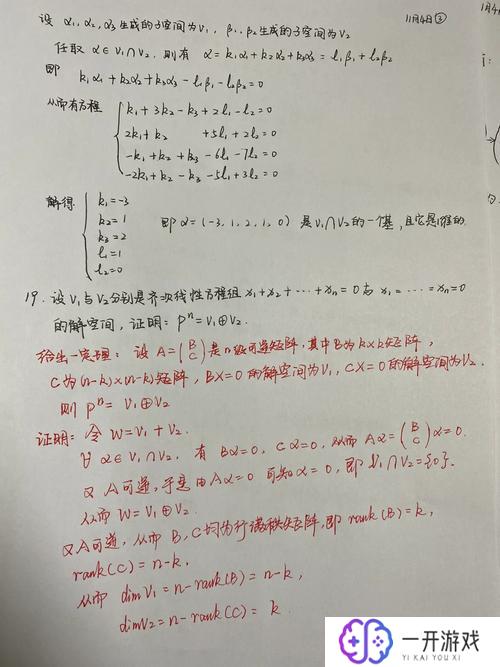 11月4日②
设 α₁, α₂, α₃ 生成的子空间为V₁, β₁, β₂ 生成的子空间为V₂
任取 α∈V₁∩V₂, 则有 α=k₁α₁+k₂α₂+k₃α₃=l₁β₁+l₂β₂
即 k₁α₁+k₂α₂+k₃α₃-l₁β₁-l₂β₂=0
从而有方程
k₁+3k₂-k₃+2l₁-l₂=0
2k₁+k₂ +5l₁+2l₂=0
-k₁+k₂+k₃-6l₁-7l₂=0
-2k₁+k₂-k₃-5l₁+3l₂=0
解得
k₁=-3
k₂=1
k₃=2
l₁=1
l₂=0
即 α=(-3,1,2,1,0) 是 V₁∩V₂的一个基, 且它是1维的.
19. 设V₁与V₂分别是齐次线性方程组 x₁+x₂+⋯+xₙ=0与 x₁=⋯=xₙ=0
的解空间, 证明: Pⁿ=V₁⊕V₂.
给出一定理: 设 A=(B C)是n级可逆矩阵, 其中B为k×k矩阵,
C为(n-k)×(n-k)矩阵, BX=0的解空间为V₁, CX=0的解空间为V₂.
则 Pⁿ=V₁⊕V₂
证明: 令 W=V₁+V₂.
∀ α∈V₁∩V₂, 有 Bα=0, Cα=0, 从而 Aα=(B C)α=0.
又A可逆, 于是由Aα=0 可知α=0, 即 V₁∩V₂={0}.
从而 W=V₁⊕V₂.
又A可逆, 从而 B, C均为行满秩矩阵, 即 rank(B)=k,
rank(C)=n-k,
从而 dimV₁=n-rank(B)=n-k,
dimV₂=n-rank(C)=k.
11月4
一开游戏
YI KAI YOU XI